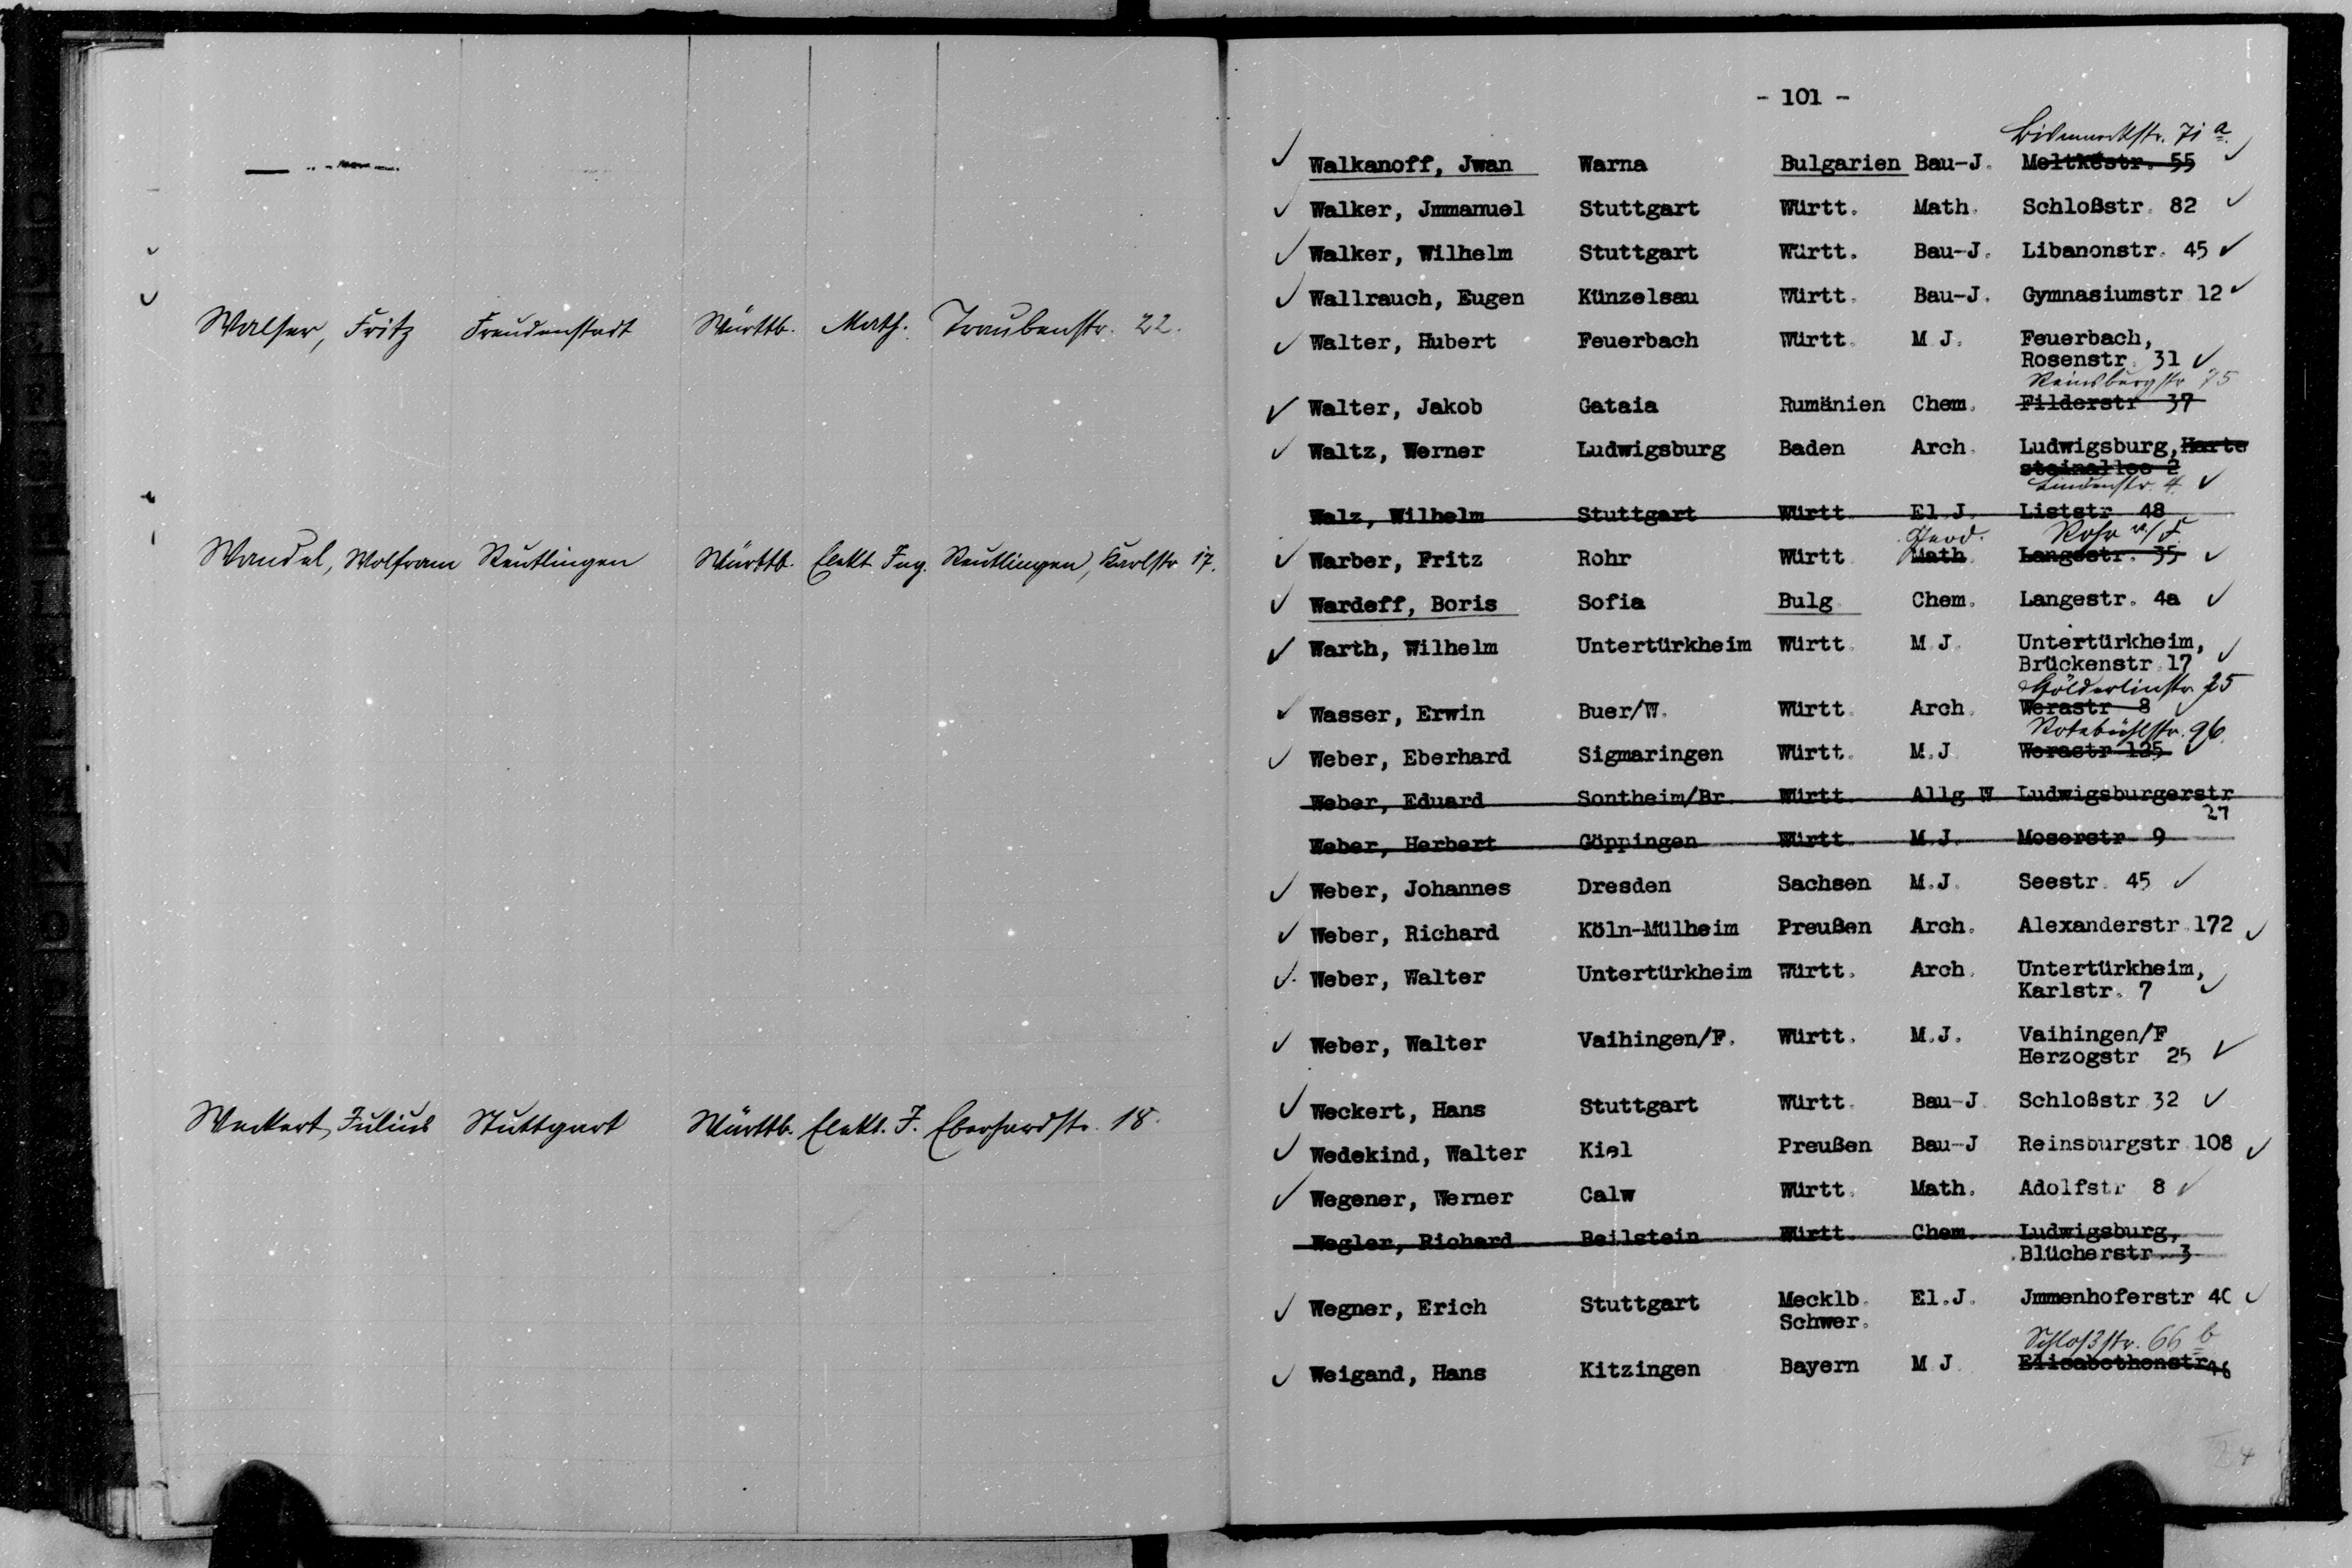 Walser, Fritz Freudenstadt Württb. Math. Traubenstr. 22.
Wandel, Wolfram Reutlingen Württb. Elekt. Ing. Reutlingen, Karlstr. 17.
Weckert, Julius Stuttgart Württb. Elekt. J. Eberhardstr. 18.
- 101 -
Bismarckstr. 71 a.
Walkanoff, Jwan Warna Bulgarien Bau-J. Moltkestr. 55
Walker, Jmmanuel Stuttgart Württ. Math. Schloßstr. 82
Walker, Wilhelm Stuttgart Württ. Bau-J. Libanonstr. 45
Wallrauch, Eugen Künzelsau Württ. Bau-J. Gymnasiumstr 12
Walter, Hubert Feuerbach Württ. M J. Feuerbach,
Rosenstr. 31
Reinsburgstr 75
Walter, Jakob Gataia Rumänien Chem. Filderstr 37
Waltz, Werner Ludwigsburg Baden Arch. Ludwigsburg, Harte
steinallee 2
Lindenstr. 4.
Walz, Wilhelm Stuttgart Württ El J. Liststr. 48
Rohr a/F
Warber, Fritz Rohr Württ Math. Langestr. 35
Wardeff, Boris Sofia Bulg. Chem. Langestr. 4a
Warth, Wilhelm Untertürkheim Württ. M.J. Untertürkheim,
Brückenstr. 17
Hölderlinstr. 25
Wasser, Erwin Buer/W. Württ. Arch. Werastr 8
Rotebühlstr. 96.
Weber, Eberhard Sigmaringen Württ. M.J Werastr 125
Weber, Eduard Sontheim/Br. Württ. Allg W Ludwigsburgerstr
27
Weber, Herbert Göppingen Württ. M.J. Moserstr 9
Weber, Johannes Dresden Sachsen M.J. Seestr. 45
Weber, Richard Köln-Mülheim Preußen Arch. Alexanderstr. 172
Weber, Walter Untertürkheim Württ. Arch. Untertürkheim,
Karlstr. 7
Weber, Walter Vaihingen/F. Württ. M.J. Vaihingen/F
Herzogstr 25
Weckert, Hans Stuttgart Württ. Bau-J. Schloßstr 32
Wedekind, Walter Kiel Preußen Bau-J Reinsburgstr 108
Wegener, Werner Calw Württ. Math. Adolfstr 8
Wegler, Richard Beilstein Württ. Chem. Ludwigsburg,
Blücherstr. 3
Wegner, Erich Stuttgart Mecklb. El.J. Jmmenhoferstr 40
Schwer.
Schloßstr. 66 b
Weigand, Hans Kitzingen Bayern M J. Elisabethenstr 46